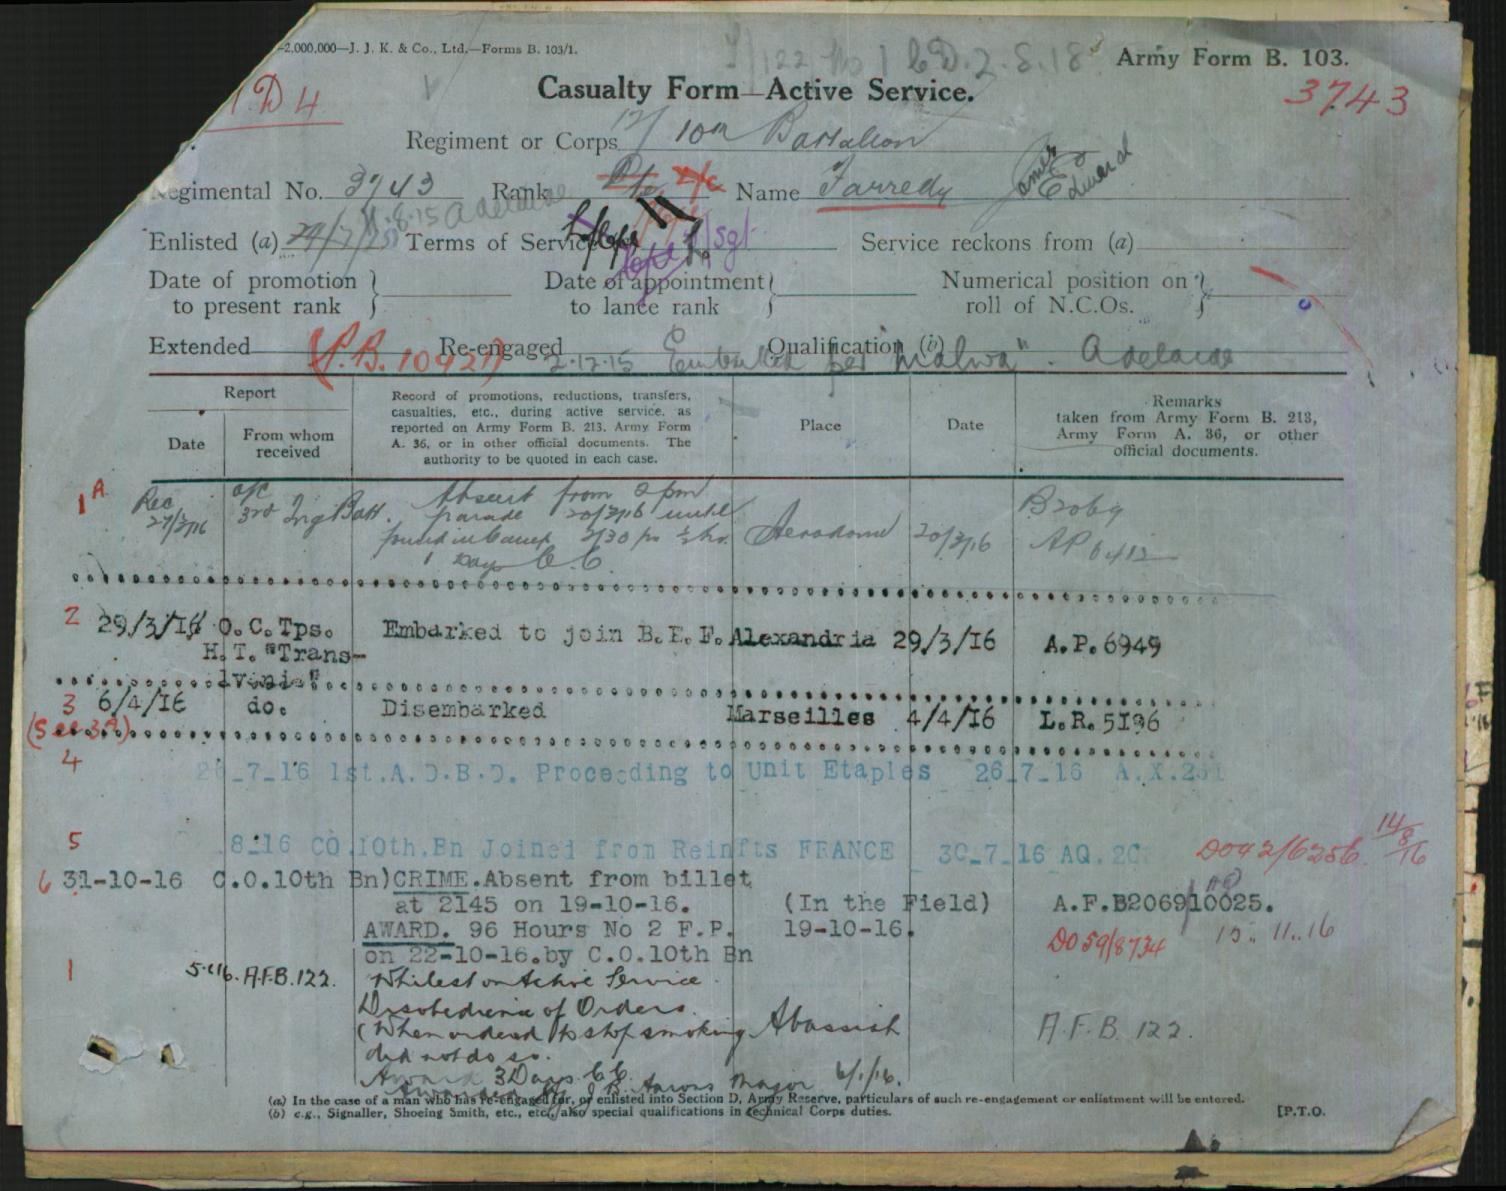 -2,000,000—J. J. K. & Co., Ltd.—Forms B. 103/1.
Army Form B. 103.
1 D 4
Casualty Form—Active Service.
3743
Regiment or Corps 12/ 10th Battalion
Regimental No. 3743 Rank Pte Name Farredy James Edward
Enlisted (a) 24/7/15 8.15 Adelaide Terms of Service T/Sgt. Service reckons from (a)
Date of promotion to present rank
Date of appointment to lance rank
Numerical position on roll of N.C.Os.
Extended Re-engaged Qualification (b)
(P.B. 10921) 2.12.15 Embarked per "Malwa". Adelaide
Report
Date
From whom received
Record of promotions, reductions, transfers,
casualties, etc., during active service, as
reported on Army Form B. 213. Army Form
A. 36, or in other official documents. The
authority to be quoted in each case.
Place
Date
Remarks
taken from Army Form B. 213,
Army Form A. 36, or other
official documents.
1A Rec 27/3/16 o/c 3rd Trg Batt. Absent from 2 pm
parade 20/3/16 until
found in Camp 2/30 pm ½ hr. Aerodrome 20/3/16 B2069
1 Days C.C. AP 6412
2 29/3/16 O.C.Tps. Embarked to join B.E.F. Alexandria 29/3/16 A.P.6949
H.T."Trans-
lvania"
3 6/4/16 do. Disembarked Marseilles 4/4/16 L.R.5196
(See 3A)
4 26-7-16 1st.A.D.B.D. Proceeding to Unit Etaples 26-7-16 A.X.251
5 8-16 CO.10th.Bn Joined from Reinfts FRANCE 30-7-16 AQ.20 DO42/6256 14/8/16
6 31-10-16 C.O.10th Bn)CRIME.Absent from billet
at 2145 on 19-10-16. (In the Field) A.F.B206910025.
AWARD. 96 Hours No 2 F.P. 19-10-16. DO59/8734 15.11.16
on 22-10-16.by C.O.10th Bn
1 5.1.16. A.F.B.122. Whilest on Active Service
Disobedience of Orders.
(When ordered to stop smoking Abassieh A.F.B. 122.
did not do so.
Award 3 Days CC.
Awarded by J B. Aarons Major 6/1/16.
(a) In the case of a man who has re-engaged for, or enlisted into Section D, Army Reserve, particulars of such re-engagement or enlistment will be entered.
(b) e.g., Signaller, Shoeing Smith, etc., etc., also special qualifications in technical Corps duties.
[P.T.O.